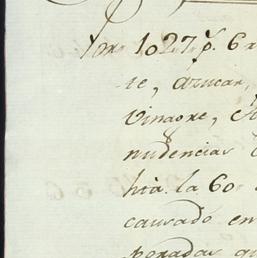 Por 1027 p. 6 r
te, azucar,
Vinagre,
nudencias
hta. la 60
causado en
poradas qu